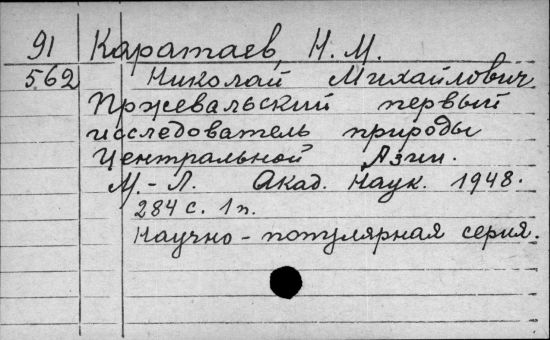 91 Каратаев, Н. М.
562 Николай Михайлович
Пржевальский первый
исследователь природы
Центральной Азии.
М.-Л. Акад. Наук. 1948.
284 с. 1 п.
Научно-популярная серия.